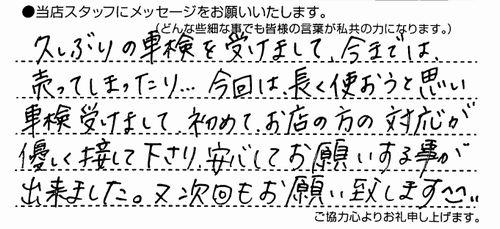 ●当店スタッフにメッセージをお願いいたします。
(どんな些細な事でも皆様の言葉が私共の力になります。)
久しぶりの車検を受けまして、今までは、
売ってしまったり… 今回は、長く使おうと思い
車検受けまして、初めて、お店の方の対応が
優しく接して下さり、安心してお願いする事が
出来ました。又次回もお願い致します^^
ご協力心よりお礼申し上げます。